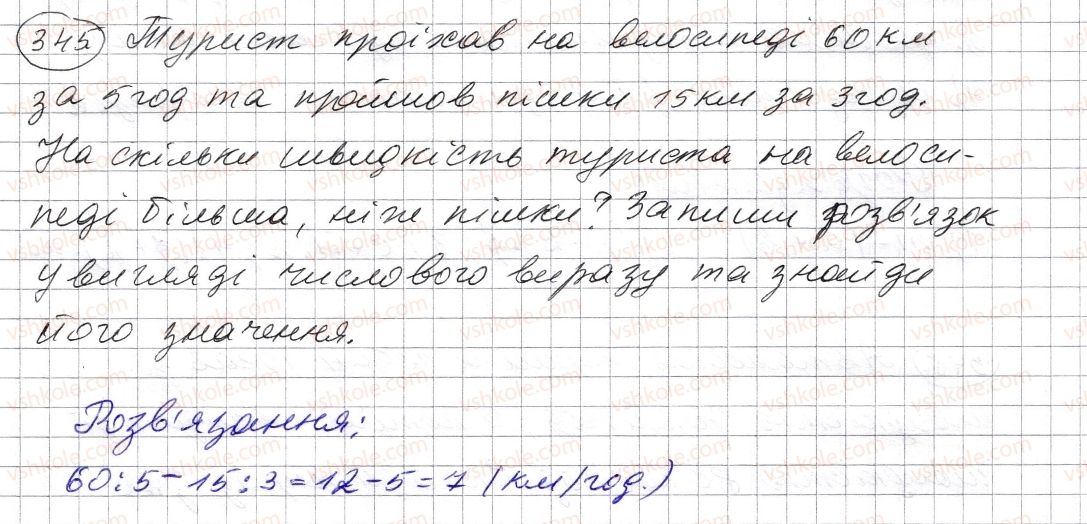 345 Турист проїхав на велосипеді 60 км
за 5 год та пройшов пішки 15 км за 3 год.
На скільки швидкість туриста на велоси-
педі більша, ніж пішки? Запиши розв'язок
у вигляді числового виразу та знайди
його значення.
Розв'язання:
60:5-15:3=12-5=7 (км/год.)